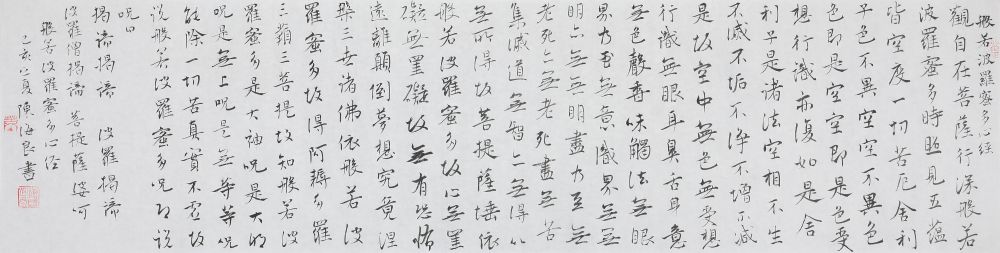 般若波羅蜜多心經
觀自在菩薩行深般若
波羅蜜多時照見五蘊
皆空度一切苦厄舍利
子色不異空空不異色
色即是空空即是色受
想行識亦復如是舍
利子是諸法空相不生
不滅不垢不淨不增不減
是故空中無色無受想
行識無眼耳鼻舌身意
無色聲香味觸法無眼
界乃至無意識界無無
明亦無無明盡乃至無
老死亦無老死盡無苦
集滅道無智亦無得以
無所得故菩提薩埵依
般若波羅蜜多故心無罣
礙無罣礙故無有恐怖
遠離顛倒夢想究竟涅
槃三世諸佛依般若波
羅蜜多故得阿耨多羅
三藐三菩提故知般若波
羅蜜多是大神呪是大明
呪是無上呪是無等等呪
能除一切苦真實不虛故
說般若波羅蜜多呪即說
呪曰
揭諦揭諦 波羅揭諦
波羅僧揭諦菩提薩婆訶
般若波羅蜜多心經
己亥之夏陳海良書